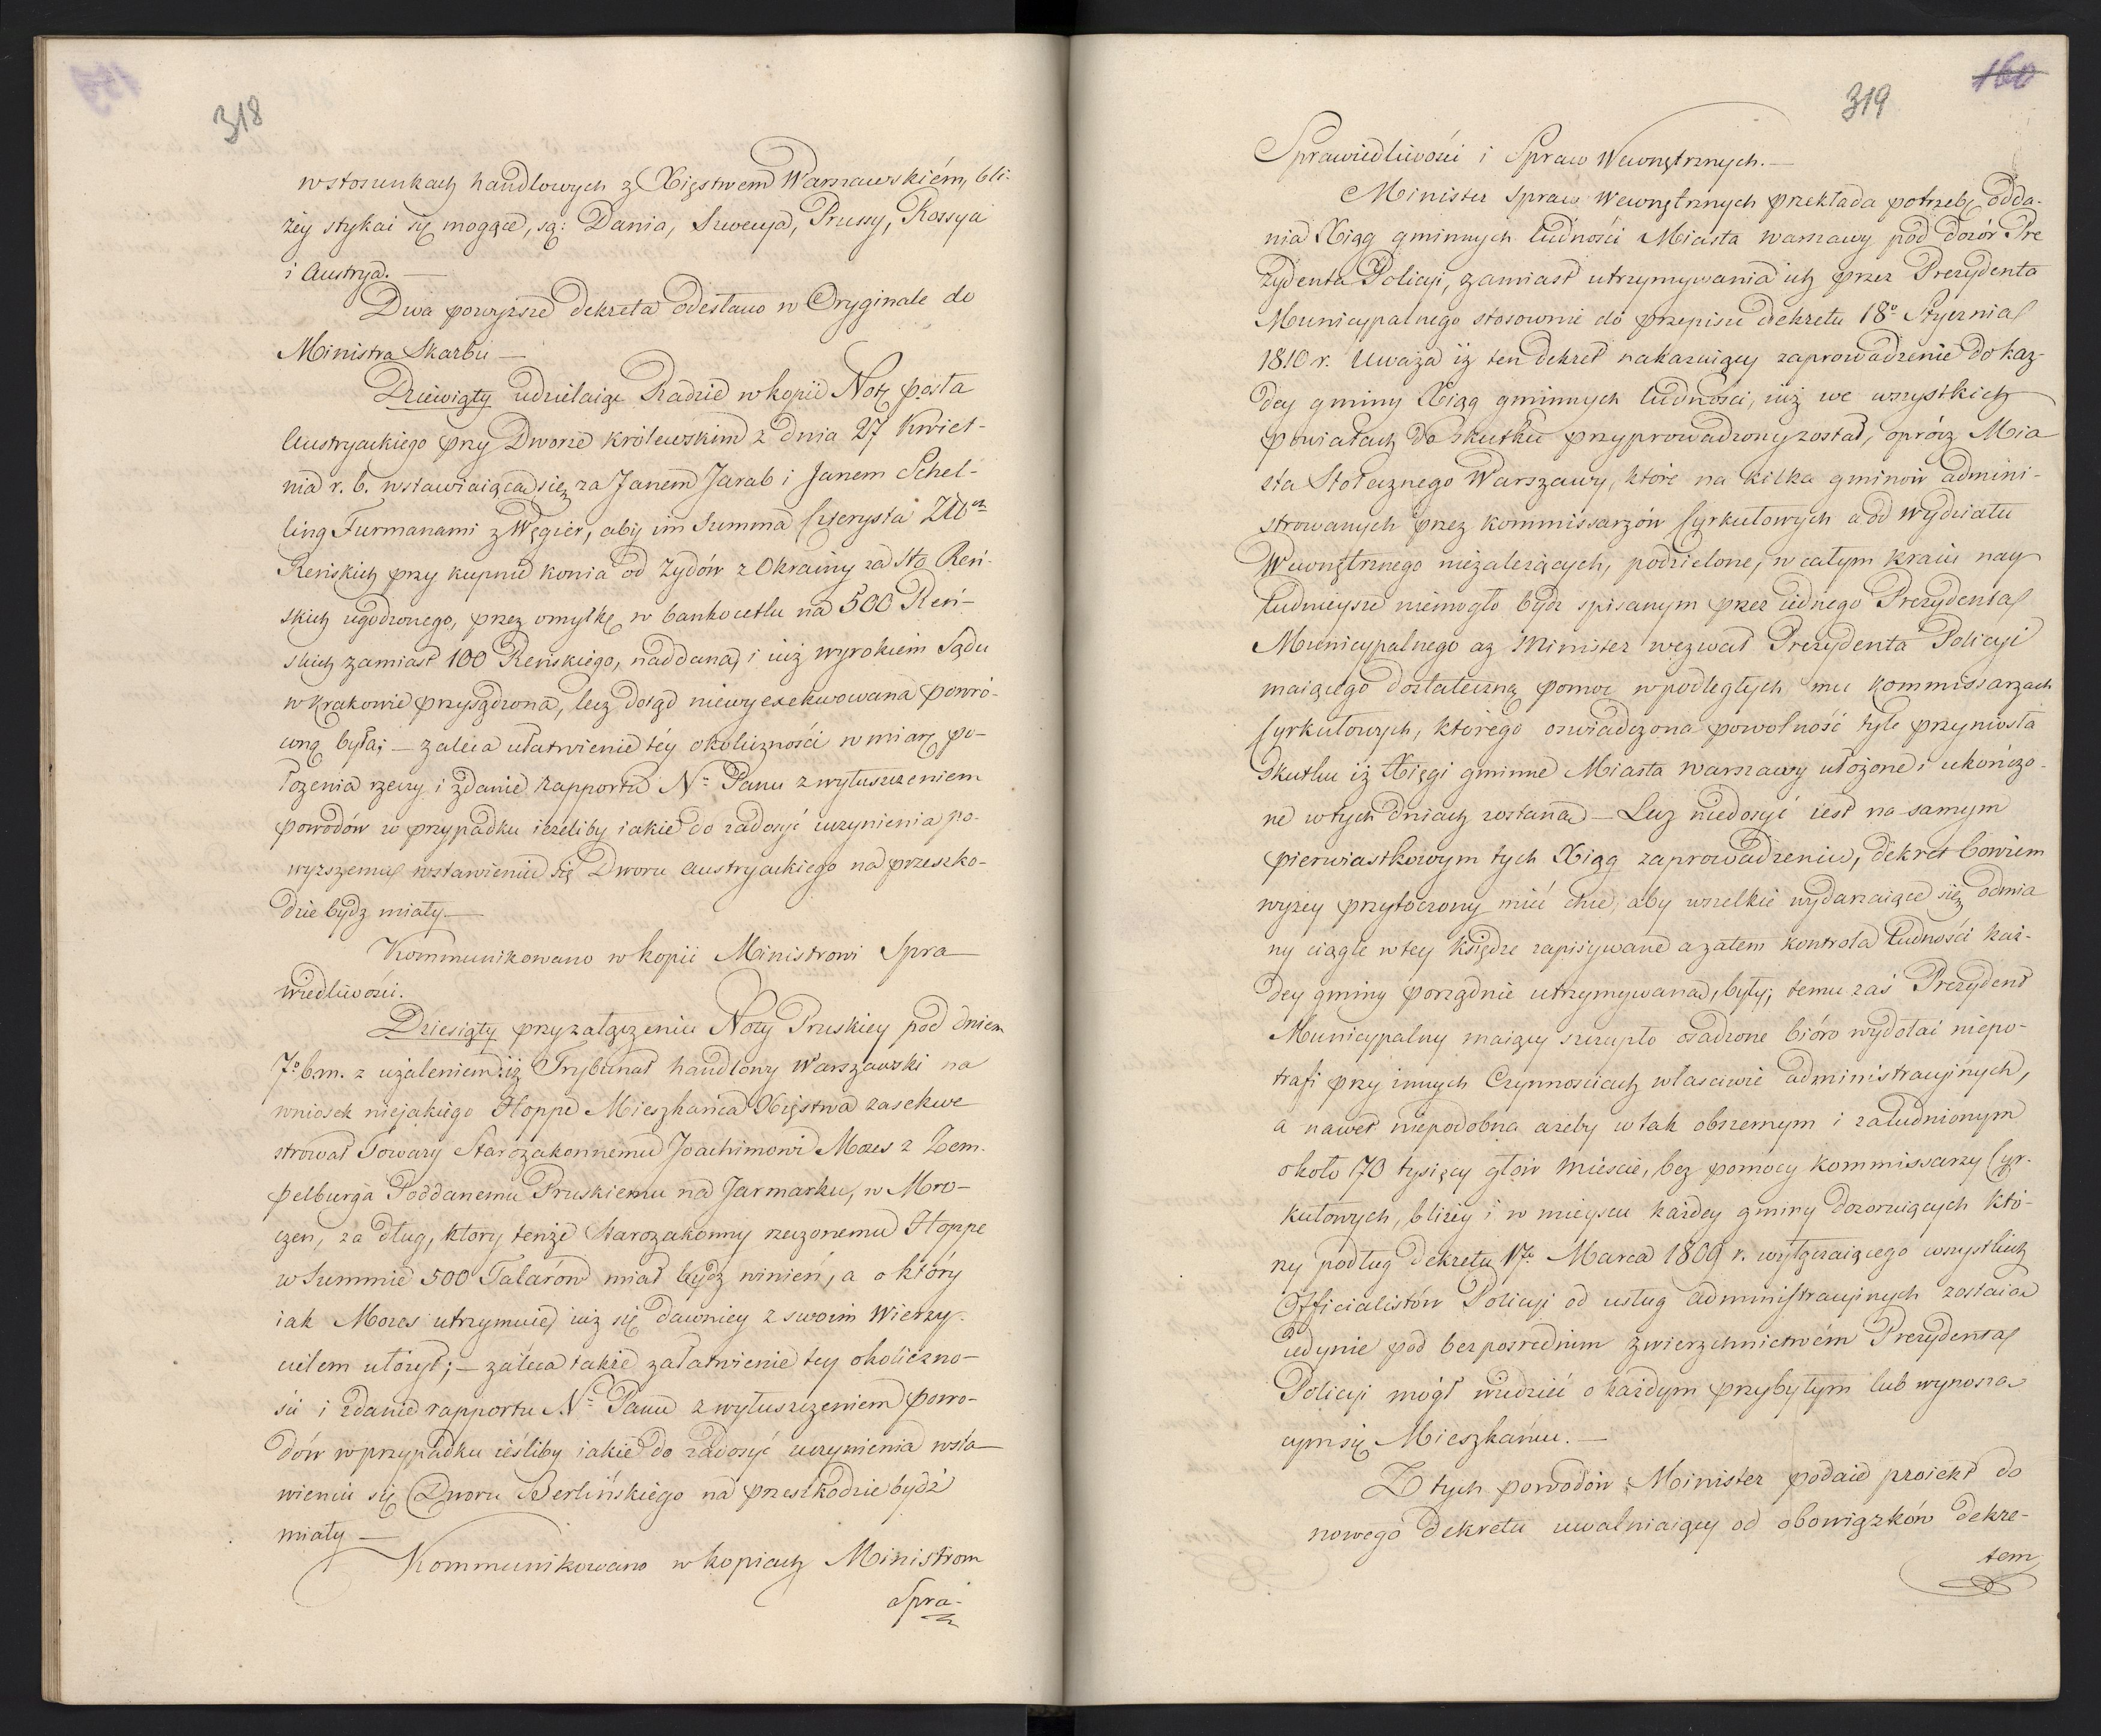 318
w stosunkach handlowych z Xięstwem Warszawskiém, bli-
żey stykai się mogące, są: Dania, Szwecya, Prussy, Rossya
i Austrya. —
Dwa powyższe dekreta odesłano w Oryginale do
Ministra Skarbu —
Dziewiąty udzielaiąc Radzie w kopii Notę posła
Austryackiego przy Dworze królewskim z dnia 27 Kwiet-
nia r. b. wstawiaiącą się za Janem Jarab i Janem Schel-
ling Furmanami z Węgier, aby im Summa czterysta Zło
Reńskich przy kupnie konia od Żydów z Okrainy za sto Reń-
skich ugodzonego, przez omyłkę w bankocetlu na 500 Reń-
skich zamiast 100 Reńskiego, naddana, i iuż wyrokiem Sądu
w Krakowie przysądzona, lecz dotąd niewyexekwowana powró-
coną była; — zaleca ułatwienie téy okoliczności w miarę po-
łożenia rzeczy i zdanie rapportu N. Panu z wyłuszczeniem
powodów w przypadku ieżeliby iakie do zadosyć uczynienia po-
wyższemu wstawieniu się Dworu Austryackiego na przeszko-
dzie bydz miały. —
Kommunikowano w kopii Ministrowi Spra-
wiedliwości.
Dziesiąty przy załączeniu Noty Pruskiey pod dniem
7° b.m. z użaleniem iż Trybunał handlowy Warszawski na
wniosek niejakiego Hoppe Mieszkańca Xięstwa zasekwe
strował Towary Starozakonnemu Joachimowi Mozes z Zem-
pelburga Poddanemu Pruskiemu na Jarmarku, w Mro-
czen, za dług, który tenże Starozakonny rzeczonemu Hoppe
w Summie 500 Talarów miał bydz winień, a o który
iak Mozes utrzymuie, iuż się dawniey z swoim Wierzy-
cielem ułożył; — zaleca także załatwienie tey okoliczno-
ści i zdanie rapportu N. Panu z wyłuszczeniem powo-
dów w przypadku ieśliby iakie do zadosyć uczynienia wsta-
wieniu się Dworu Berlińskiego na przeszkodzie bydź
miały —
Kommunikowano w kopiach Ministrom
Spra-
160
319
Sprawiedliwości i Spraw Wewnętrznych. —
Minister Spraw Wewnętrznych przekłada potrzebę odda-
nia Xiąg gminnych ludności Miasta Warszawy pod dozór Pre
zydenta Policyi, zamiast utrzymywania ich przez Prezydenta
Municypalnego stosownie do przepisu dekretu 18° Stycznia
1810 r. Uważa iż ten dekret nakazuiący zaprowadzenie do kaz-
dey gminy Xiąg gminnych ludności, iuż we wszystkich
powiatach do skutku przyprowadzony został, oprócz Mia
sta Stołecznego Warszawy, które na kilka gminów admini-
strowanych przez kommissarzów Cyrkułowych a od wydziału
Wewnętrznego niezależących, podzielone, w całym kraiu nay
ludnieysze niemogło bydz spisanym przez iednego Prezydenta
Municypalnego aż Minister wezwał Prezydenta Policyi
maiącego dostateczną pomoc w podległych mu kommissarzach
Cyrkułowych, którego oswiadczona powolność tyle przyniosła
skutku iż Xięgi gminne Miasta Warszawy ułożone i ukończo-
ne w tych dniach zostaną — Lecz niedosyć iest na samym
pierwiastkowym tych Xiąg zaprowadzeniu, dekret bowiem
wyżey przytoczony mieć chce, aby wszelkie wydarzaiące się odmia
ny ciągle w tey księdze zapisywane a zatem kontrola ludności każ-
dey gminy porządnie utrzymywana, były; temu zaś Prezydent
Municypalny maiący szczupło osadzone bióro wydołai niepo-
trafi przy innych Czynnościach właściwie administracyinych,
a nawet niepodobna ażeby w tak obszernym i zaludnionym
około 70 tysięcy głów mieście, bez pomocy kommissarzy Cyr-
kułowych, bliżey i w mieyscu każdey gminy dozoruiących któ-
rzy podług dekretu 17° Marca 1809 r. wyłączaiącego wszystkich
Officialistów Policyi od usług administracyinych zostaią
iedynie pod bezpośrednim zwierzchnictwém Prezydenta
Policyi mógł wiedzieć o każdym przybyłym lub wynoszą
cym się Mieszkańcu. —
Z tych powodów Minister podaie proiekt do
nowego dekretu uwalniaiący od obowiązków dekre-
tem